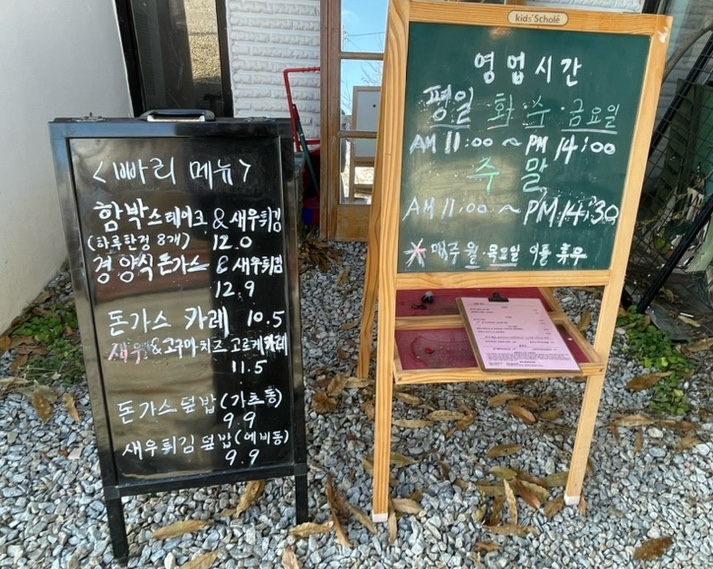 <빠리 메뉴>
함박스테이크 & 새우튀김
(하루한정 8개) 12.0
경양식돈가스 & 새우튀김
12.9
돈가스 카레 10.5
새우&고구마치즈 고로케카레
11.5
돈가스덮밥(가츠동)
9.9
새우튀김덮밥(에비동)
9.9
kids' Scholé
영업시간
평일 화·수·금요일
AM 11:00 ~ PM 14:00
주말
AM 11:00 ~ PM 14:30
* 매주 월·목요일 이틀 휴무